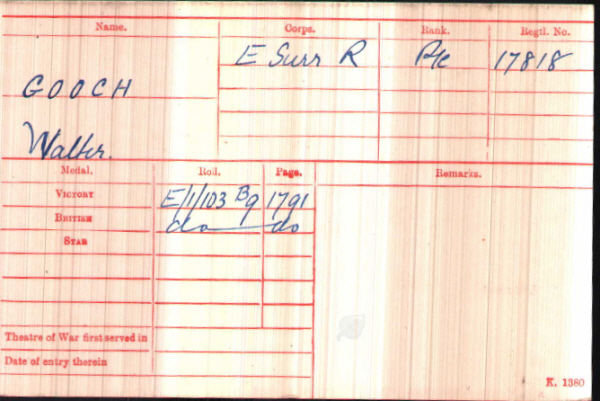 Name. Corps. Rank. Regtl. No.
E Surr R Pte 17818
GOOCH
Walter.
Medal. Roll. Page. Remarks.
VICTORY E/1/103 B9 1791
BRITISH do do
STAR
Theatre of War first served in
Date of entry therein
K. 1380